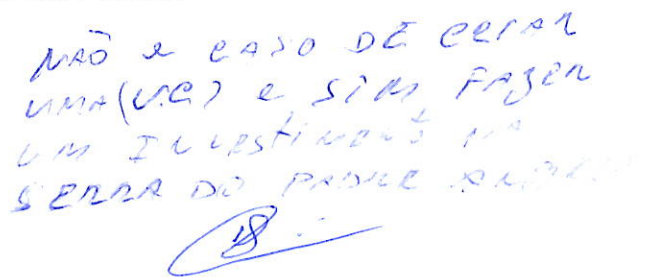 NÃO é CASO DE CRIAR
UMA (U.C.) e SIM FAZER
UM INVESTIMENTO NA
SERRA DO PADRE